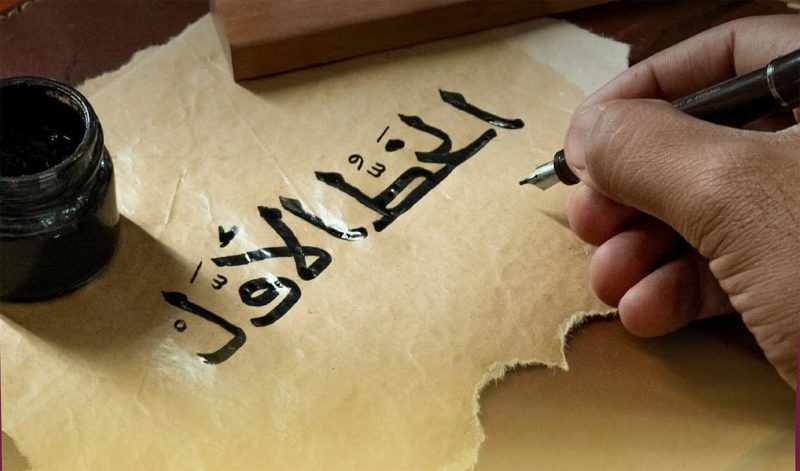 الخَطُّ الأوَّلْ